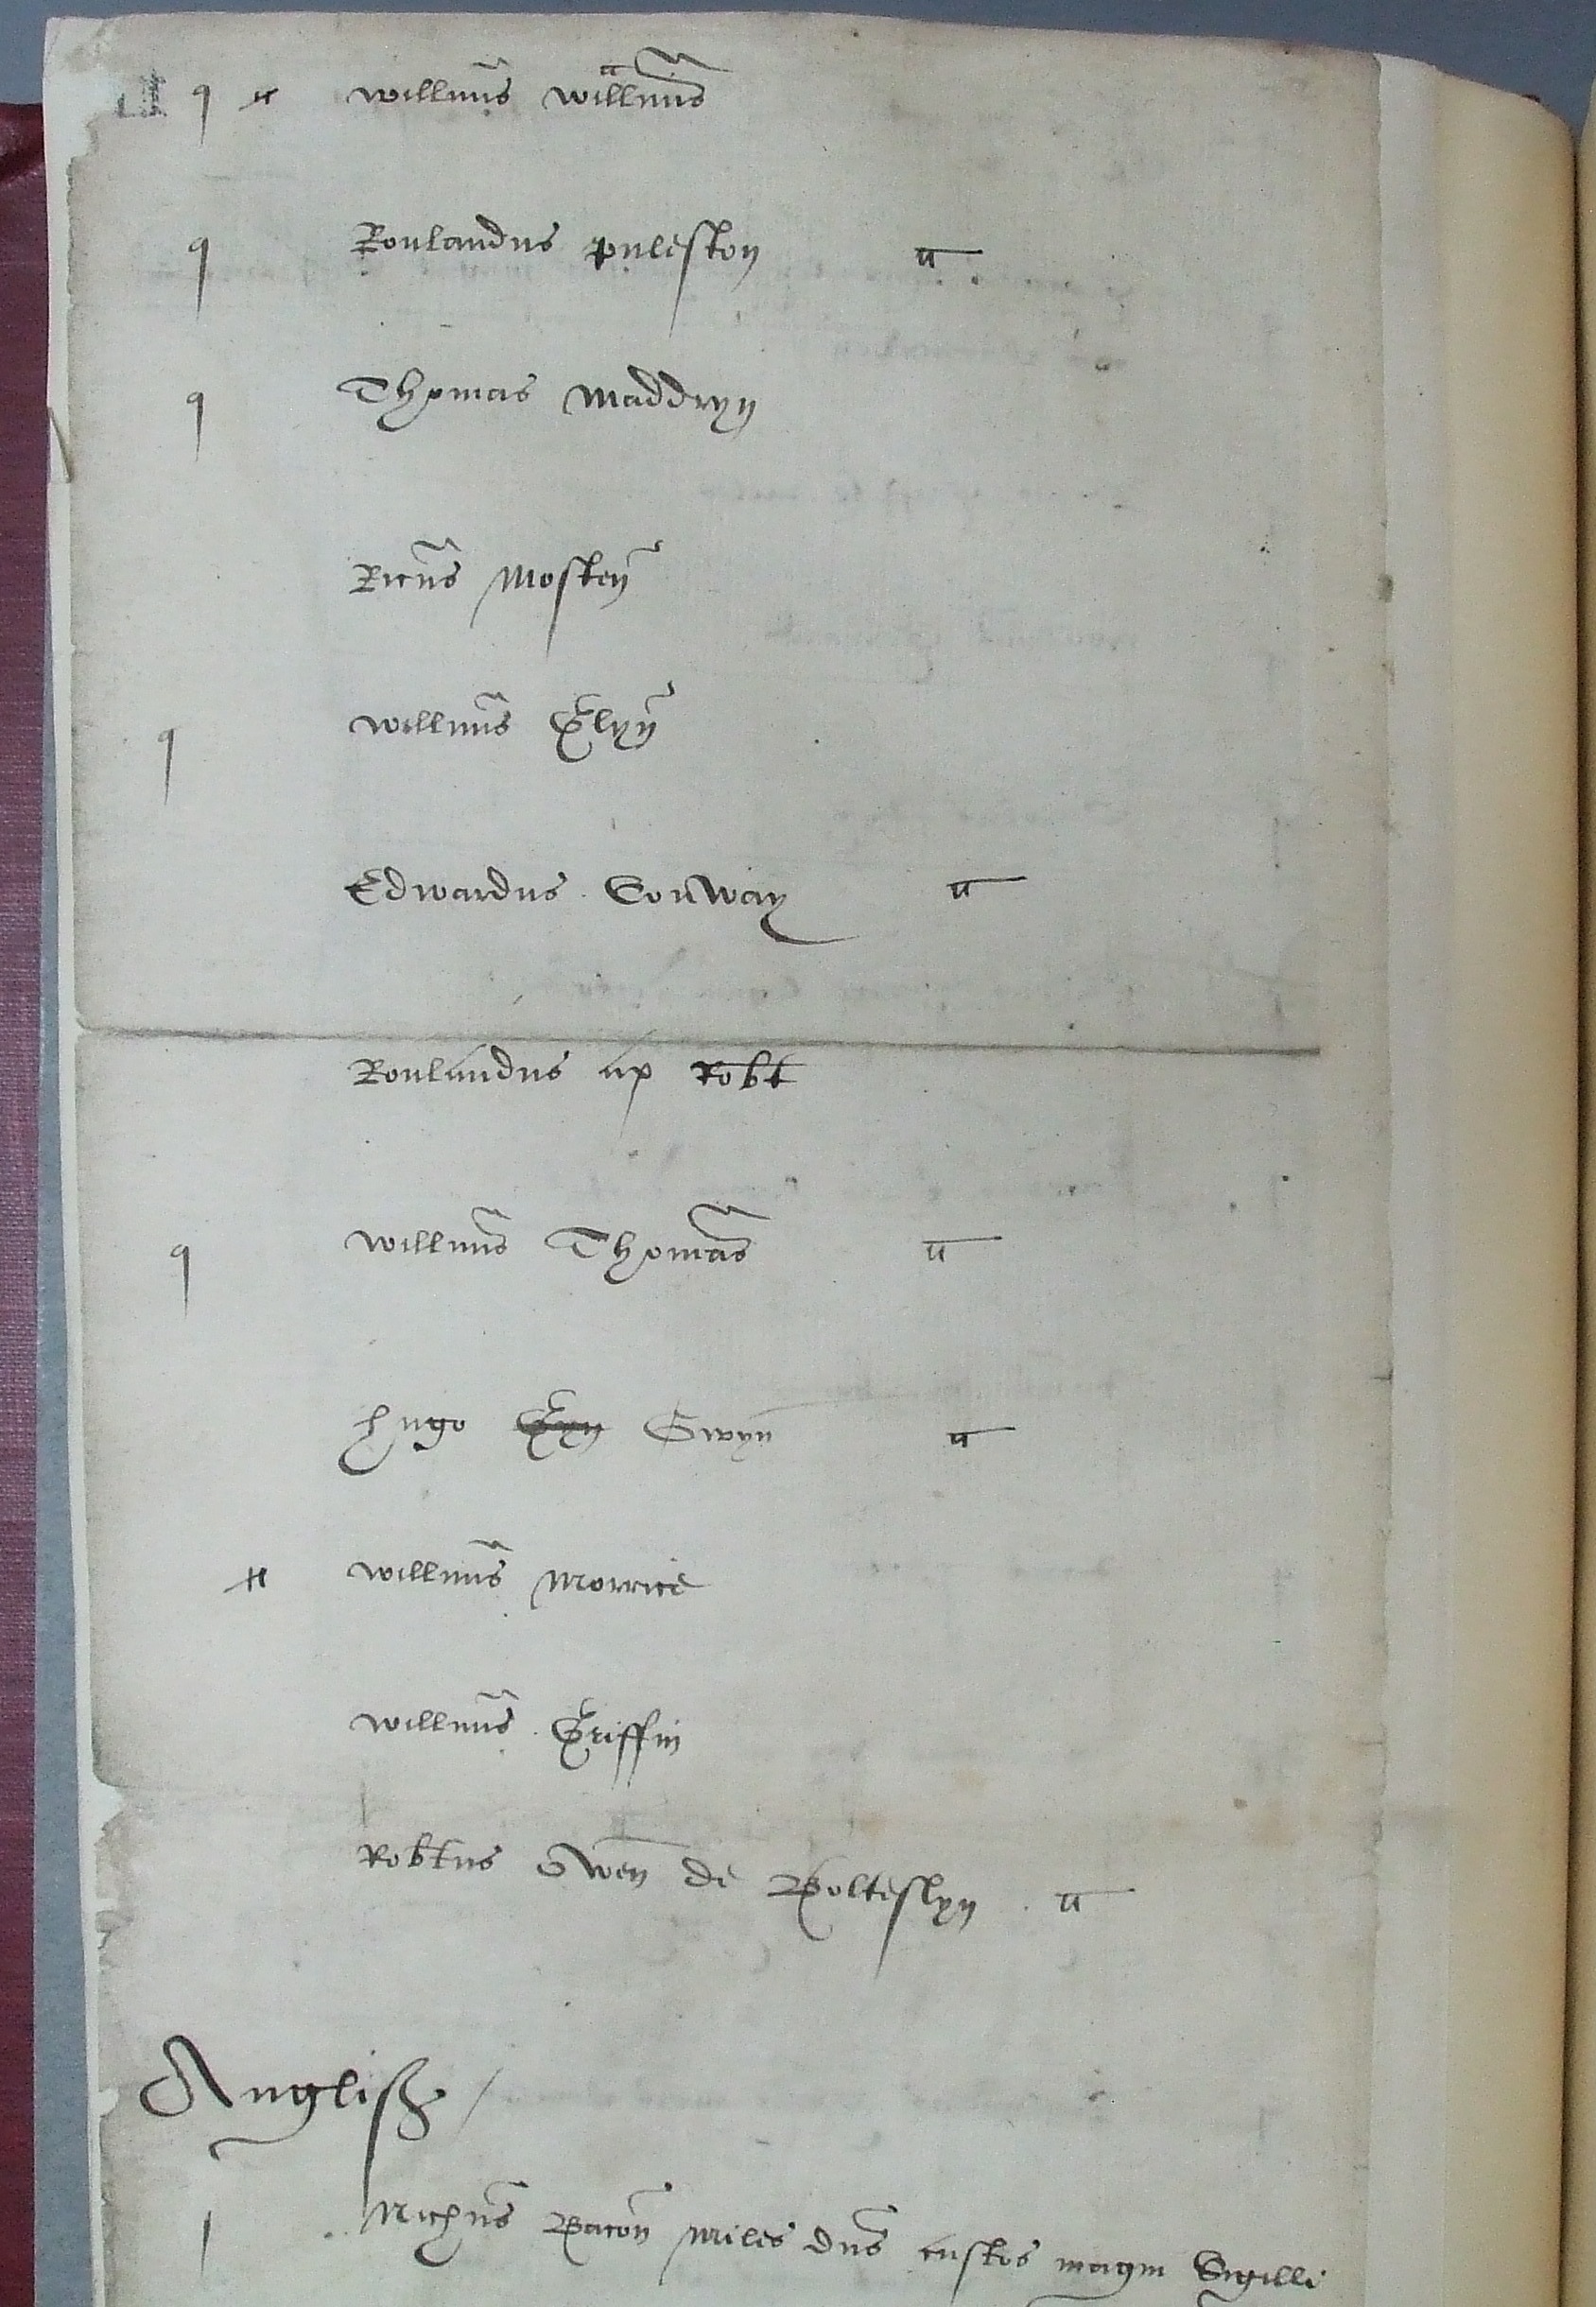 q Willm̃s Willm̃s
q Roulandus Puleston
q Thomas Maddryn
Ricũs Mosten
q Willm̃s Glyn
Edwardus Conway
Roulandus ap Robt
q Willm̃s Thomas
Hugo Gwyn
Willm̃s Morrice
Willm̃s Griffin
Robtus Owen de
Anglis
Nichũs Bacon Miles dñs custos magni Sigilli